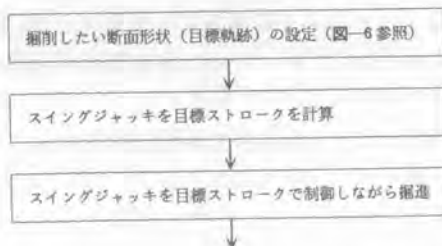 掘削したい断面形状（目標軌跡）の設定（図―6参照）
スイングジャッキを目標ストロークを計算
スイングジャッキを目標ストロークで制御しながら掘進